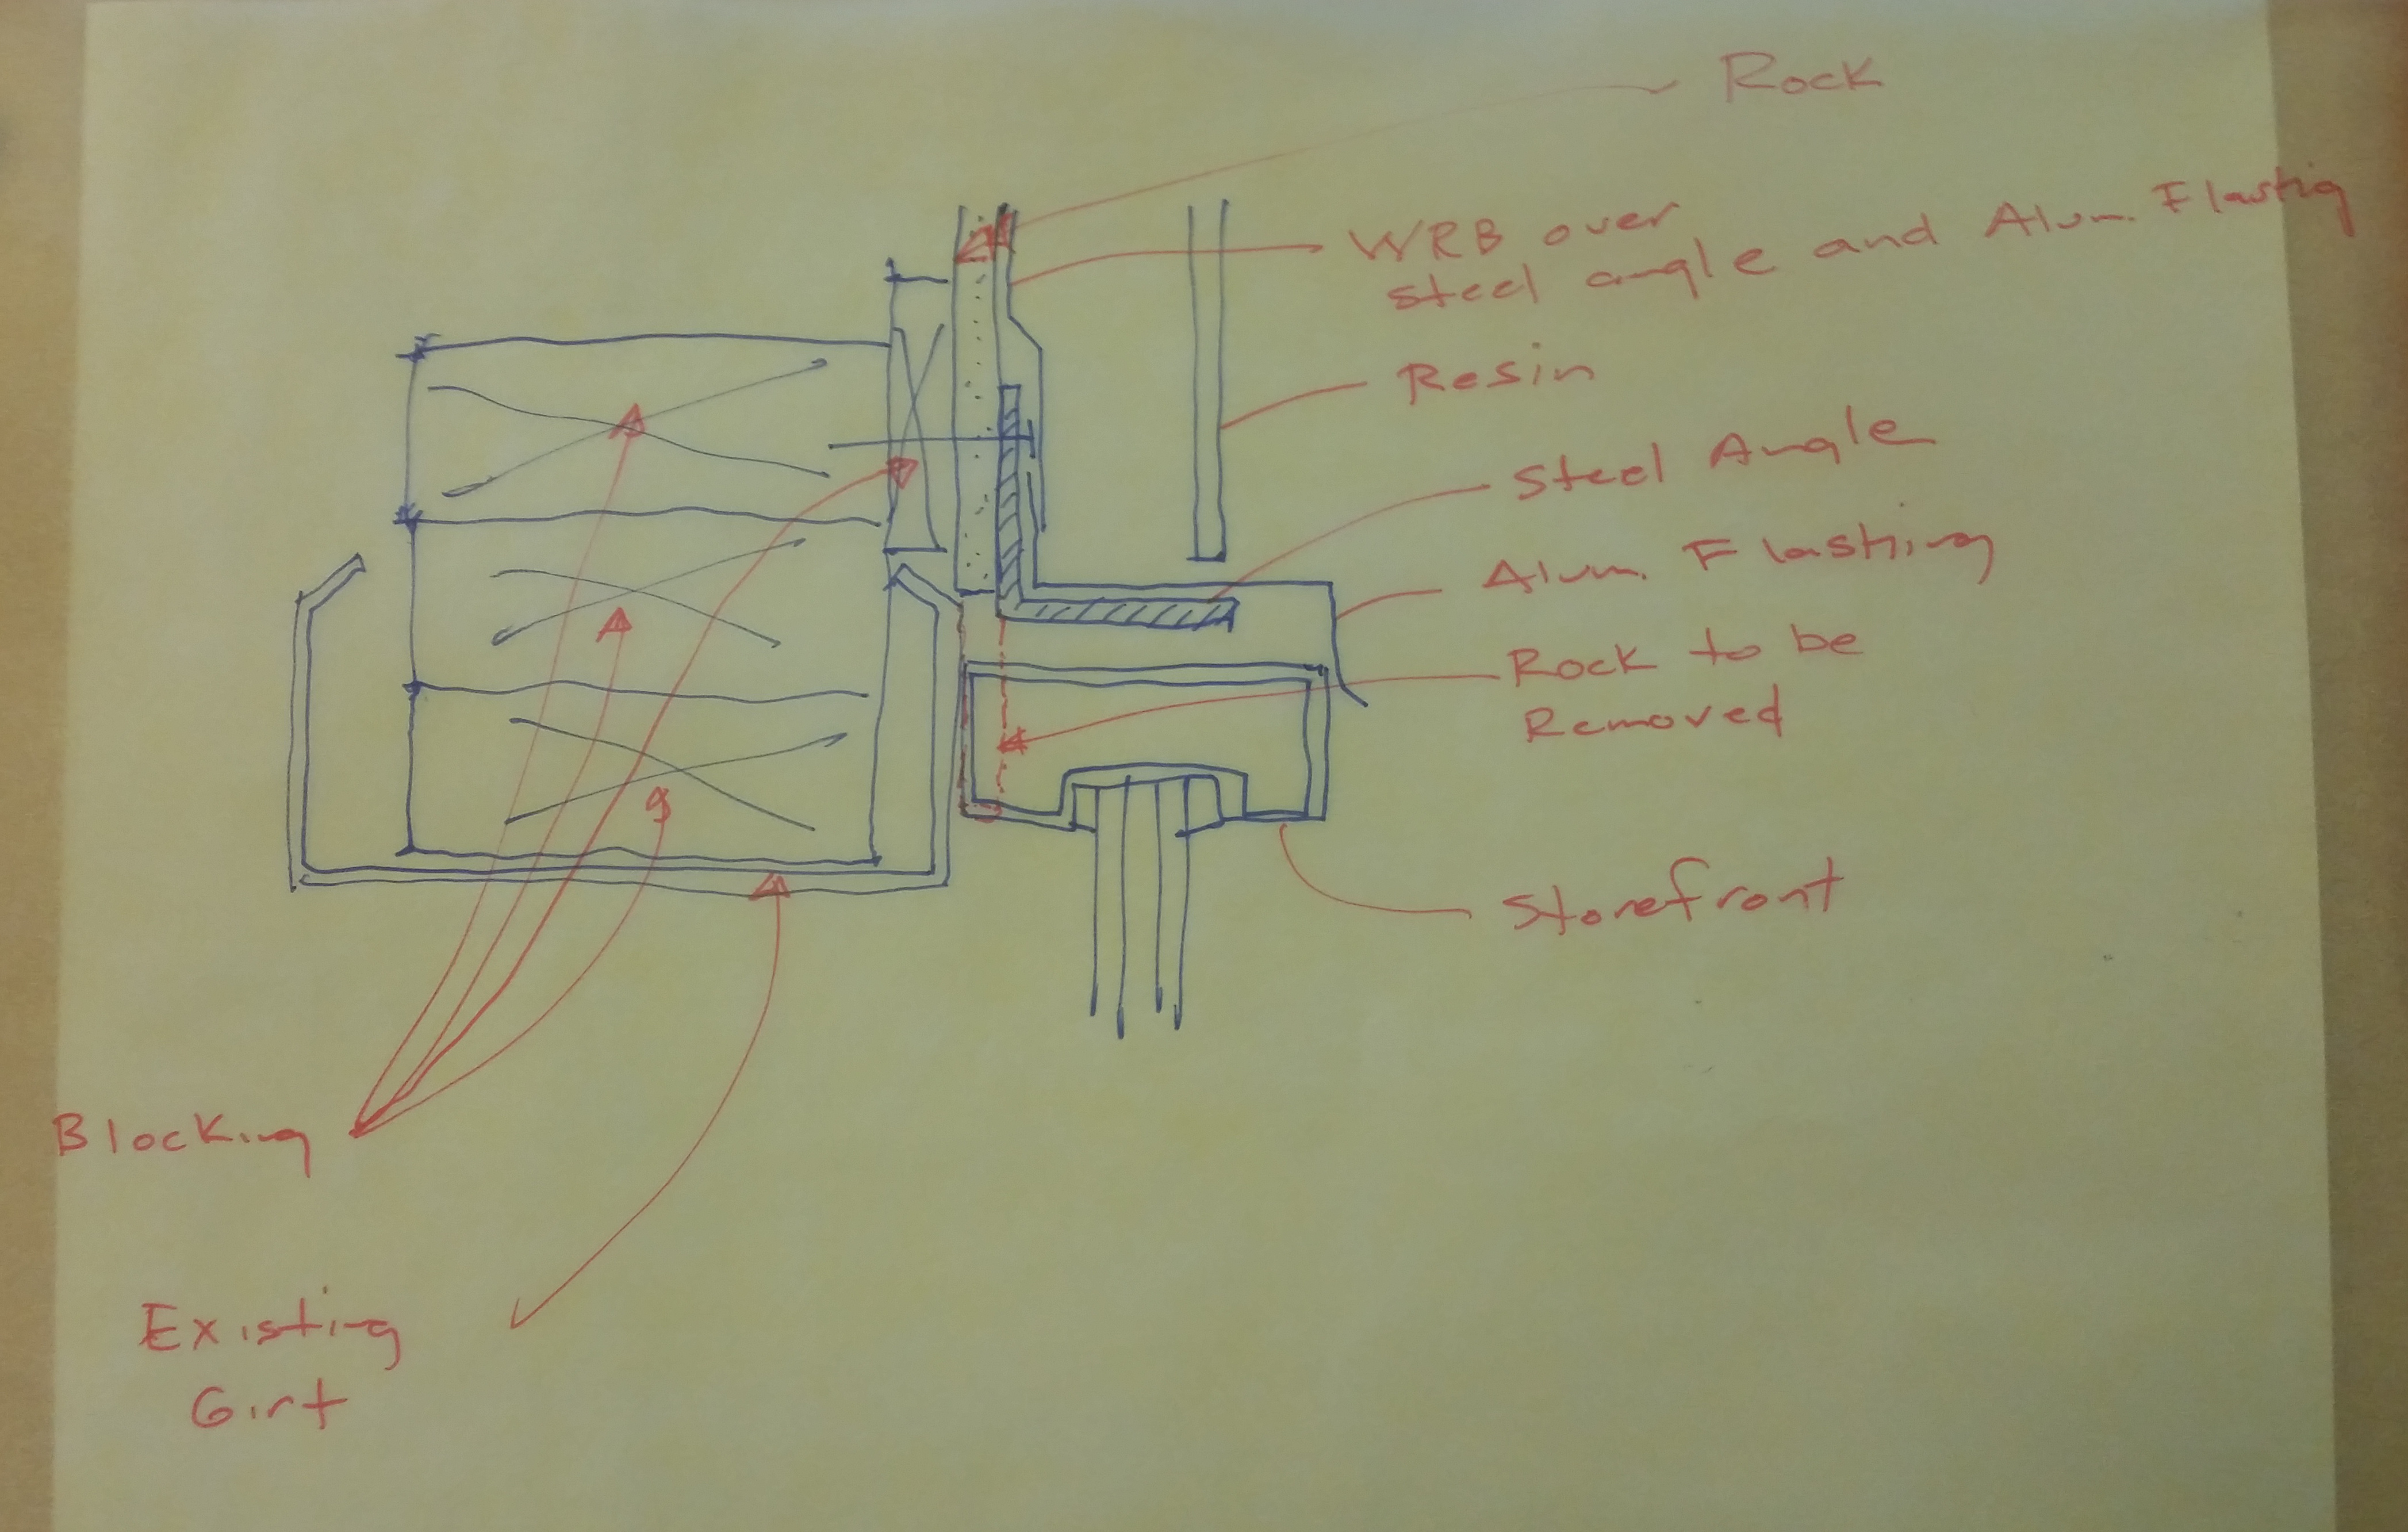 Rock
WRB over
steel angle and Alum. Flashig
Resin
Steel Angle
Alum. Flashing
Rock to be
Removed
Storefront
Blocking
Existing
Girt